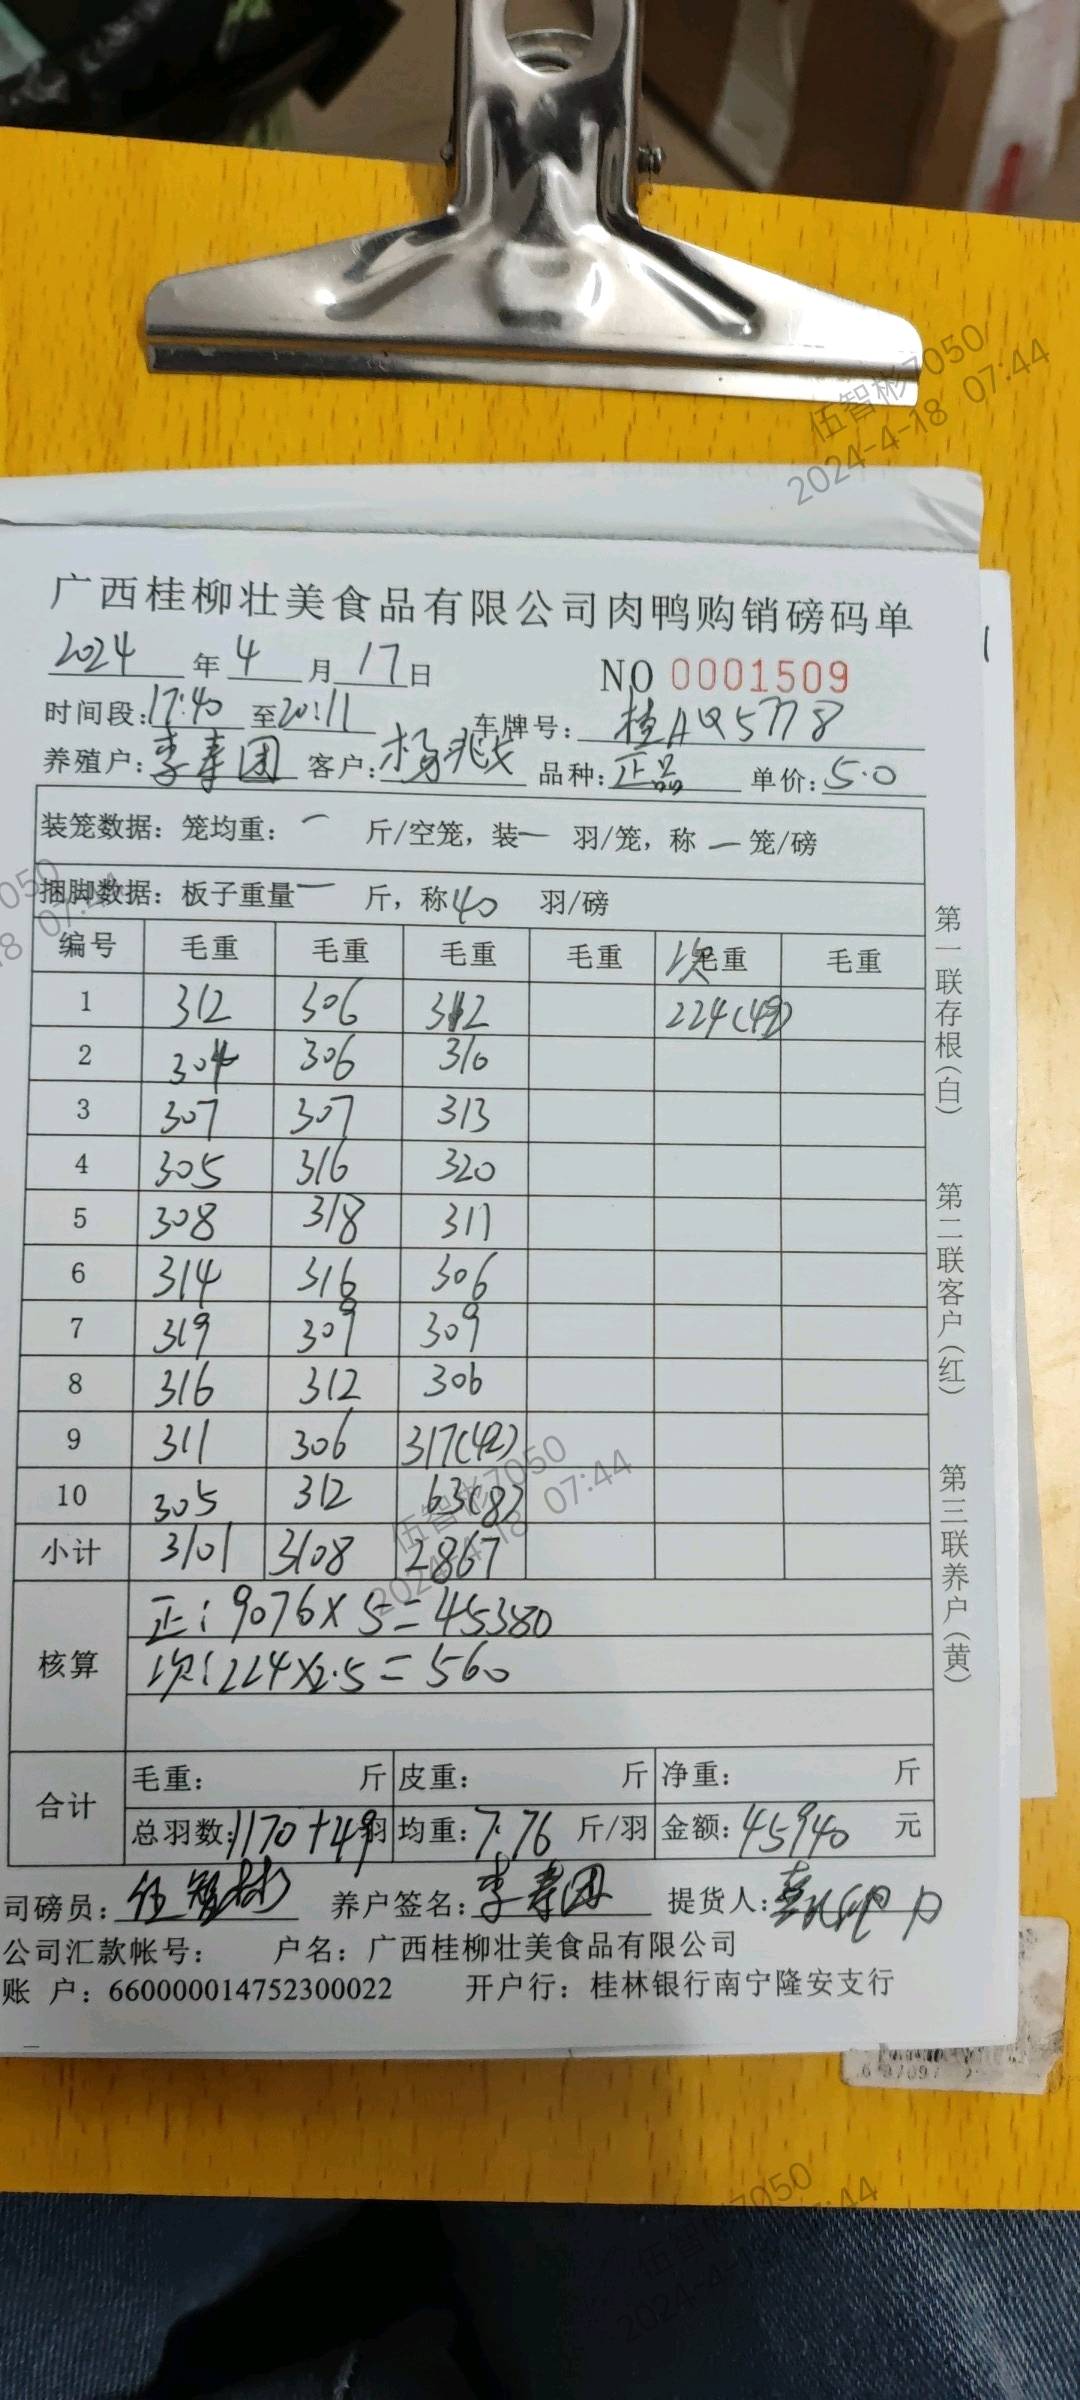 伍智彬7050
2024-4-18 07:44
广西桂柳壮美食品有限公司肉鸭购销磅码单
2024年4月17日 NO 0001509
时间段:17:40至20:11 车牌号:桂AQ5778
养殖户:李寿团 客户:杨兆 品种:正品 单价:5.0
装笼数据:笼均重:一 斤/空笼,装一 羽/笼,称一笼/磅
捆脚数据:板子重量一 斤,称40 羽/磅
编号 毛重 毛重 毛重 毛重 次 毛重 毛重
1 312 306 312 224(49)
2 304 306 310
3 307 307 313
4 305 316 320
5 308 318 311
6 314 316 306
7 319 309 309
8 316 312 306
9 311 306 317(42)
10 305 312 63(8)
小计 3101 3108 2867
核算
正:9076×5=45380
次:224×2.5=560
合计
毛重: 斤 皮重: 斤 净重: 斤
总羽数:1170+49羽 均重:7.76 斤/羽 金额:45940 元
司磅员:伍智彬 养户签名:李寿团 提货人:
公司汇款帐号: 户名:广西桂柳壮美食品有限公司
账 户:660000014752300022 开户行:桂林银行南宁隆安支行
第一联存根(白)
第二联客户(红)
第三联养户(黄)
7050
18 07:44
伍智彬7050
2024-4-18 07:44
7050
07:44